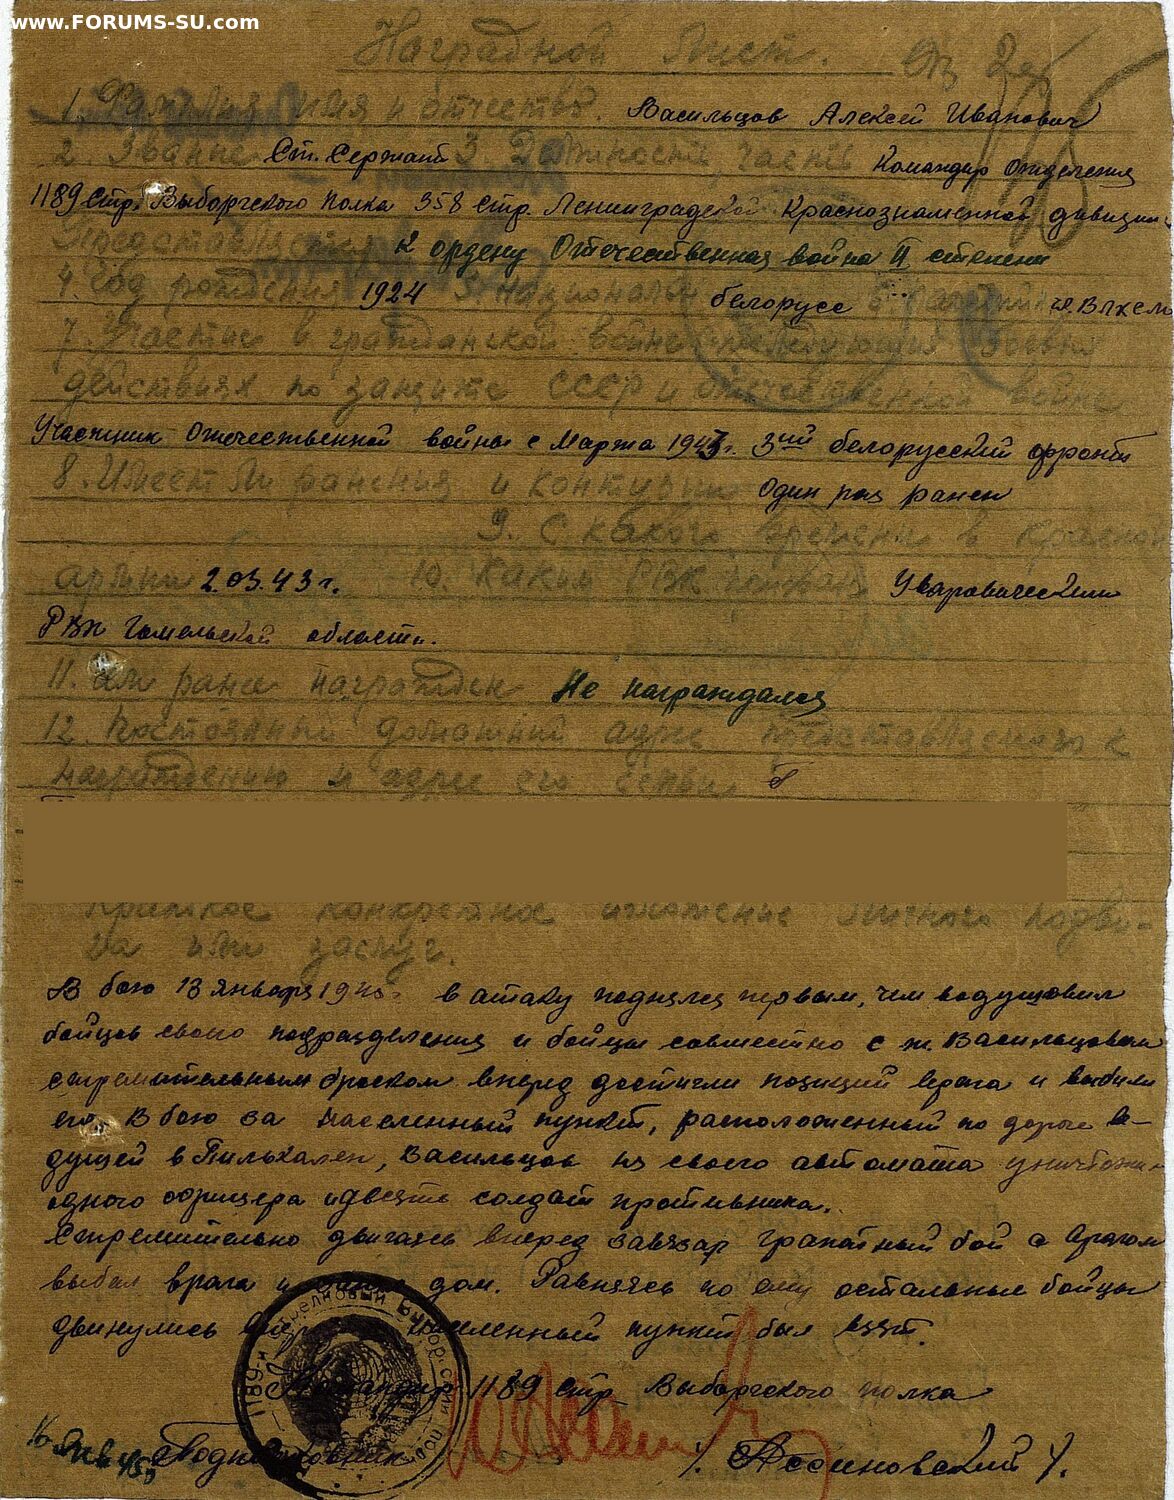 www.FORUMS-SU.com
Наградной Лист.
1. Фамилия имя и отчество. Васильцов Алексей Иванович
2. Звание Ст. Сержант 3. Должность, часть Командир отделения
1189 стр. Выборгского полка 358 стр. Ленинградской Краснознаменной дивизии
Представляется к ордену Отечественная война II степени
4. Год рождения 1924 5. Национальн белорусс 6. Партийн чл. ВЛКСМ
7. Участие в гражданской войне последующих боевых
действиях по защите СССР и отечественной войне
Участник Отечественной войны с Марта 1943г. 3ий белорусский фронт
8. Имеет ли ранения и контузии один раз ранен
9. С какого времени в красной
армии 2.03.43 г. 10. Каким РВК призван Уваровическим
РВК Гомельской области.
11. Чем ранее награжден Не награждался
12. Постоянный домашний адрес представляемого к
награждению и адрес его семьи г
Краткое конкретное изложение личного подви-
га или заслуг.
В бою 13 января 1945г. в атаку поднялся первым, чем водушовил
бойцов своего подразделения и бойцы совместно с т. Васильцовым
стремительным броском вперед достигли позиций врага и выбили
его. В бою за населенный пункт, расположенный по дороге ве-
дущей в Пилькален, Васильцов из своего автомата уничтожил
одного офицера и двести солдат противника.
Стремительно двигаясь вперед завязал гранатный бой с врагом
выбил врага и занял дом. Равняясь по ему остальные бойцы
двинулись населенный пункт был взят.
Командир 1189 стр Выборгского полка
16 янв 45г Подполковник /. Асатиновский /.
1189-й Стрелковый Выборгский пол